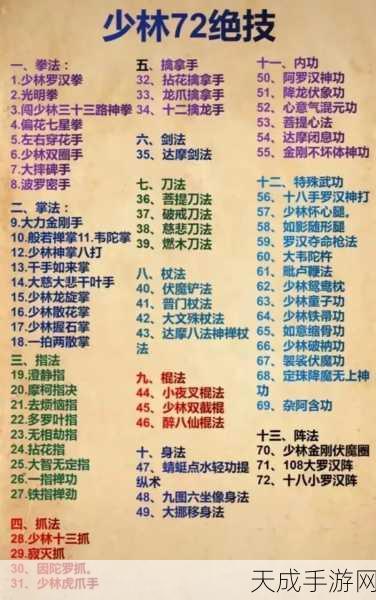 少林72绝技
一、拳法:
1.少林罗汉拳
2.光明拳
3.闯少林三十三路神拳
4.偏花七星拳
5.左右穿花手
6.少林双圈手
7.大摔碑手
8.波罗密手
二、掌法:
9.大力金刚手
10.般若禅掌11.韦陀掌
12.少林神掌八打
13.千手如来掌
14.大慈大悲千叶手
15.少林龙旋掌
16.少林散花掌
17.少林握石掌
18.一拍两散掌
三、指法
19.澄静指
20.摩柯指决
21.去烦恼指
22.多罗叶指
23.无相劫指
24.拈花指
25.大智无定指
26.一指禅功
27.铁指禅劲
四、抓法
28.少林十三抓
29.寂灭抓
30、因陀罗抓。
31、少林虎爪手
五、擒拿手
32、拈花擒拿手
33、龙爪擒拿手
34、十二擒龙手
六、剑法
35、达摩剑法
七、刀法
36、菩提刀法
37、破戒刀法
38、慈悲刀法
39、燃木刀法
八、杖法
40、伏魔铲法
41、普门杖法
42、大文殊杖法
43、达摩八法神禅杖
法
九、棍法
44、小夜叉棍法
45、少林双截棍
46、醉八仙棍法
十、身法
47、蜻蜓点水轻功提
纵术
48、九图六坐像身法
49、大挪移身法
十一、内功
50、阿罗汉神功
51、降龙伏象功
52、心意气混元功
53、菩提心法
54、达摩闭息功
55、金刚不坏体神功
十二、特殊武功
56、十八手罗汉神打
57、少林怀心腿。
58、如影随形腿
59、罗汉夺命枪法
60、大韦陀杵
61、毗卢鞭法
62、少林鸳鸯枕
63、少林童子功
64、少林铁帚功
65、如意缩骨功
66、少林破衲功
67、袈裟伏魔功
68、定珠降魔无上神
功
69、杂阿含功
十三、阵法
70、少林金刚伏魔圈
71、108大罗汉阵
72、十八小罗汉阵
天成手游网